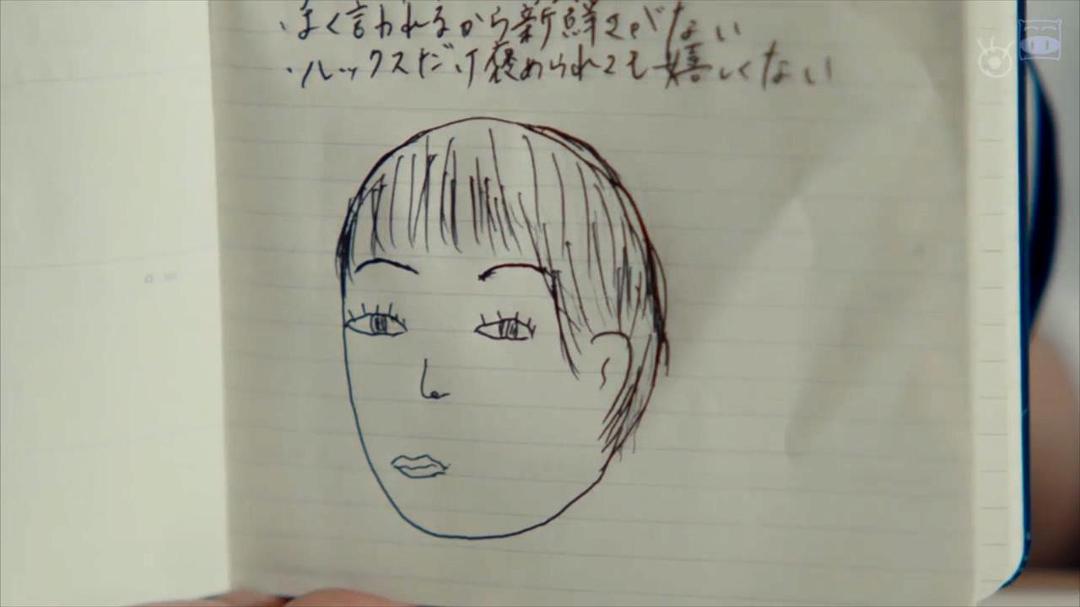 ・よく言われるから新鮮さがない
・ルックスだけ褒められても嬉しくない